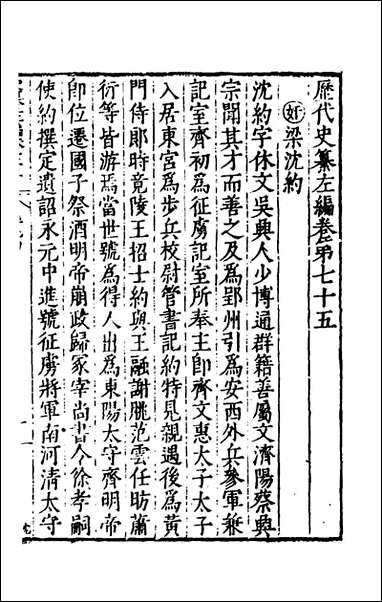 歷代史纂左編卷第七十五
奸 梁沈約
沈約字休文吳興人少博通群籍善屬文濟陽蔡興
宗聞其才而善之及為郢州引為安西外兵參軍兼
記室齊初為征虜記室所奉主即齊文惠太子太子
入居東宮為步兵校尉管書記約特見親遇後為黃
門侍郎時竟陵王招士約與王融謝朓范雲任昉蕭
衍等皆游焉當世號為得人出為東陽太守齊明帝
卽位遷國子祭酒明帝崩政歸冢宰尚書令徐孝嗣
使約撰定遺詔永元中進號征虜將軍南河清太守